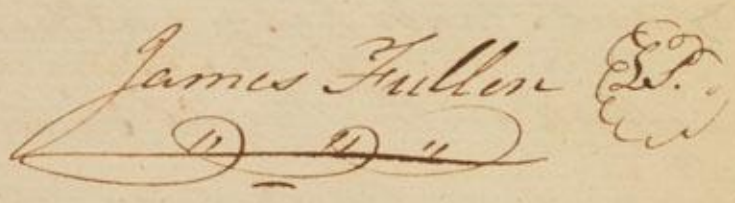 James Fullen L.S.